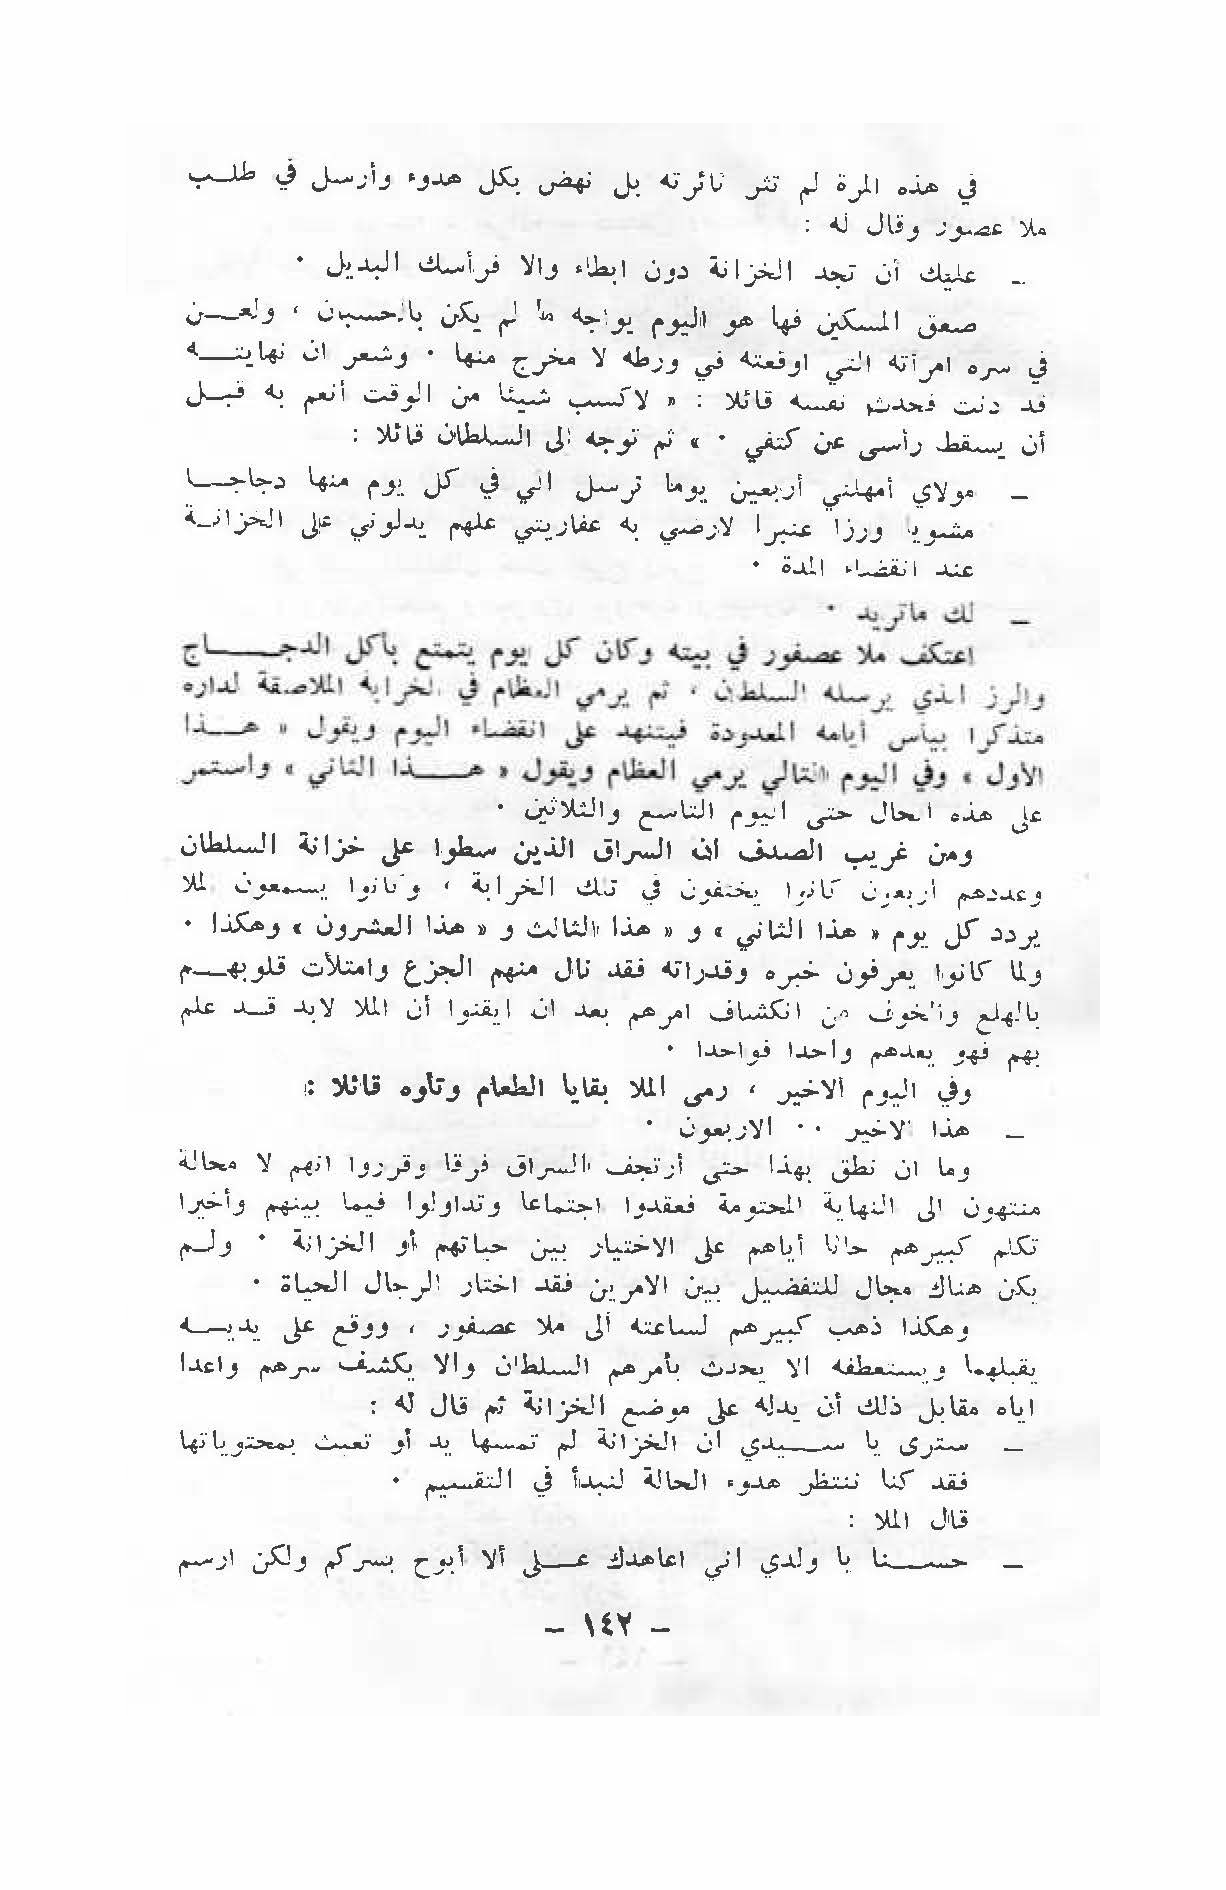 في هذه المرة لم تثر ثائرته بل نهض بكل هدوء وأرسل في طلب
ملا عصفور وقال له :
ـ عليك أن تجد الخزانة دون ابطاء والا فرأسك البديل .
صعق المسكين فها هو اليوم يواجه ما لم يكن بالحسبان ، ولعن
في سره امرأته التي اوقعته في ورطه لا مخرج منها . وشعر ان نهايته
قد دنت فحدث نفسه قائلا : « لاكسب شيئا من الوقت أنعم به قبل
أن يسقط رأسي عن كتفي . » ثم توجه الى السلطان قائلا :
ـ مولاي أمهلني أربعين يوما ترسل الي في كل يوم منها دجاجا
مشويا ورزا عنبرا لارضي به عفاريتي علهم يدلوني على الخزانة
عند انقضاء المدة .
ـ لك ماتريد .
اعتكف ملا عصفور في بيته وكان كل يوم يتمتع بأكل الدجاج
والرز الذي يرسله السلطان ، ثم يرمي العظام في الخرابة الملاصقة لداره
متذكرا بيأس أيامه المعدودة فيتنهد على انقضاء اليوم ويقول « هذا
الأول » وفي اليوم التالي يرمي العظام ويقول « هذا الثاني » واستمر
على هذه الحال حتى اليوم التاسع والثلاثين .
ومن غريب الصدف ان السراق الذين سطوا على خزانة السلطان
وعددهم اربعون كانوا يختفون في تلك الخرابة ، وكانوا يسمعون الملا
يردد كل يوم « هذا الثاني » و « هذا الثالث و « هذا العشرون » وهكذا .
ولما كانوا يعرفون خبره وقدراته فقد نال منهم الجزع وامتلأت قلوبهم
بالهلع والخوف من انكشاف امرهم بعد ان ايقنوا أن الملا لابد قد علم
بهم فهو يعدهم واحدا فواحدا .
وفي اليوم الاخير ، رمى الملا بقايا الطعام وتأوه قائلا :
ـ هذا الاخير .. الاربعون .
وما ان نطق بهذا حتى أرتجف السراق فرقا وقرروا انهم لا محالة
منتهون الى النهاية المحتومة فعقدوا اجتماعا وتداولوا فيما بينهم وأخيرا
تكلم كبيرهم حاثا أياهم على الاختيار بين حياتهم أو الخزانة . ولم
يكن هناك مجال للتفضيل بين الامرين فقد اختار الرجال الحياة .
وهكذا ذهب كبيرهم لساعته ألى ملا عصفور ، ووقع على يديه
يقبلهما ويستعطفه الا يحدث بأمرهم السلطان والا يكشف سرهم واعدا
اياه مقابل ذلك أن يدله على موضع الخزانة ثم قال له :
ـ سترى يا سيدي ان الخزانة لم تمسها يد أو تعبث بمحتوياتها
فقد كنا ننتظر هدوء الحالة لنبدأ في التقسيم .
قال الملا :
ـ حسنا يا ولدي اني اعاهدك على ألا أبوح بسركم ولكن ارسم
ـ ١٤٢ ـ